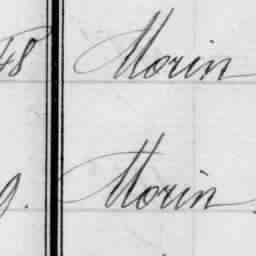 48 Morin
9. Morin